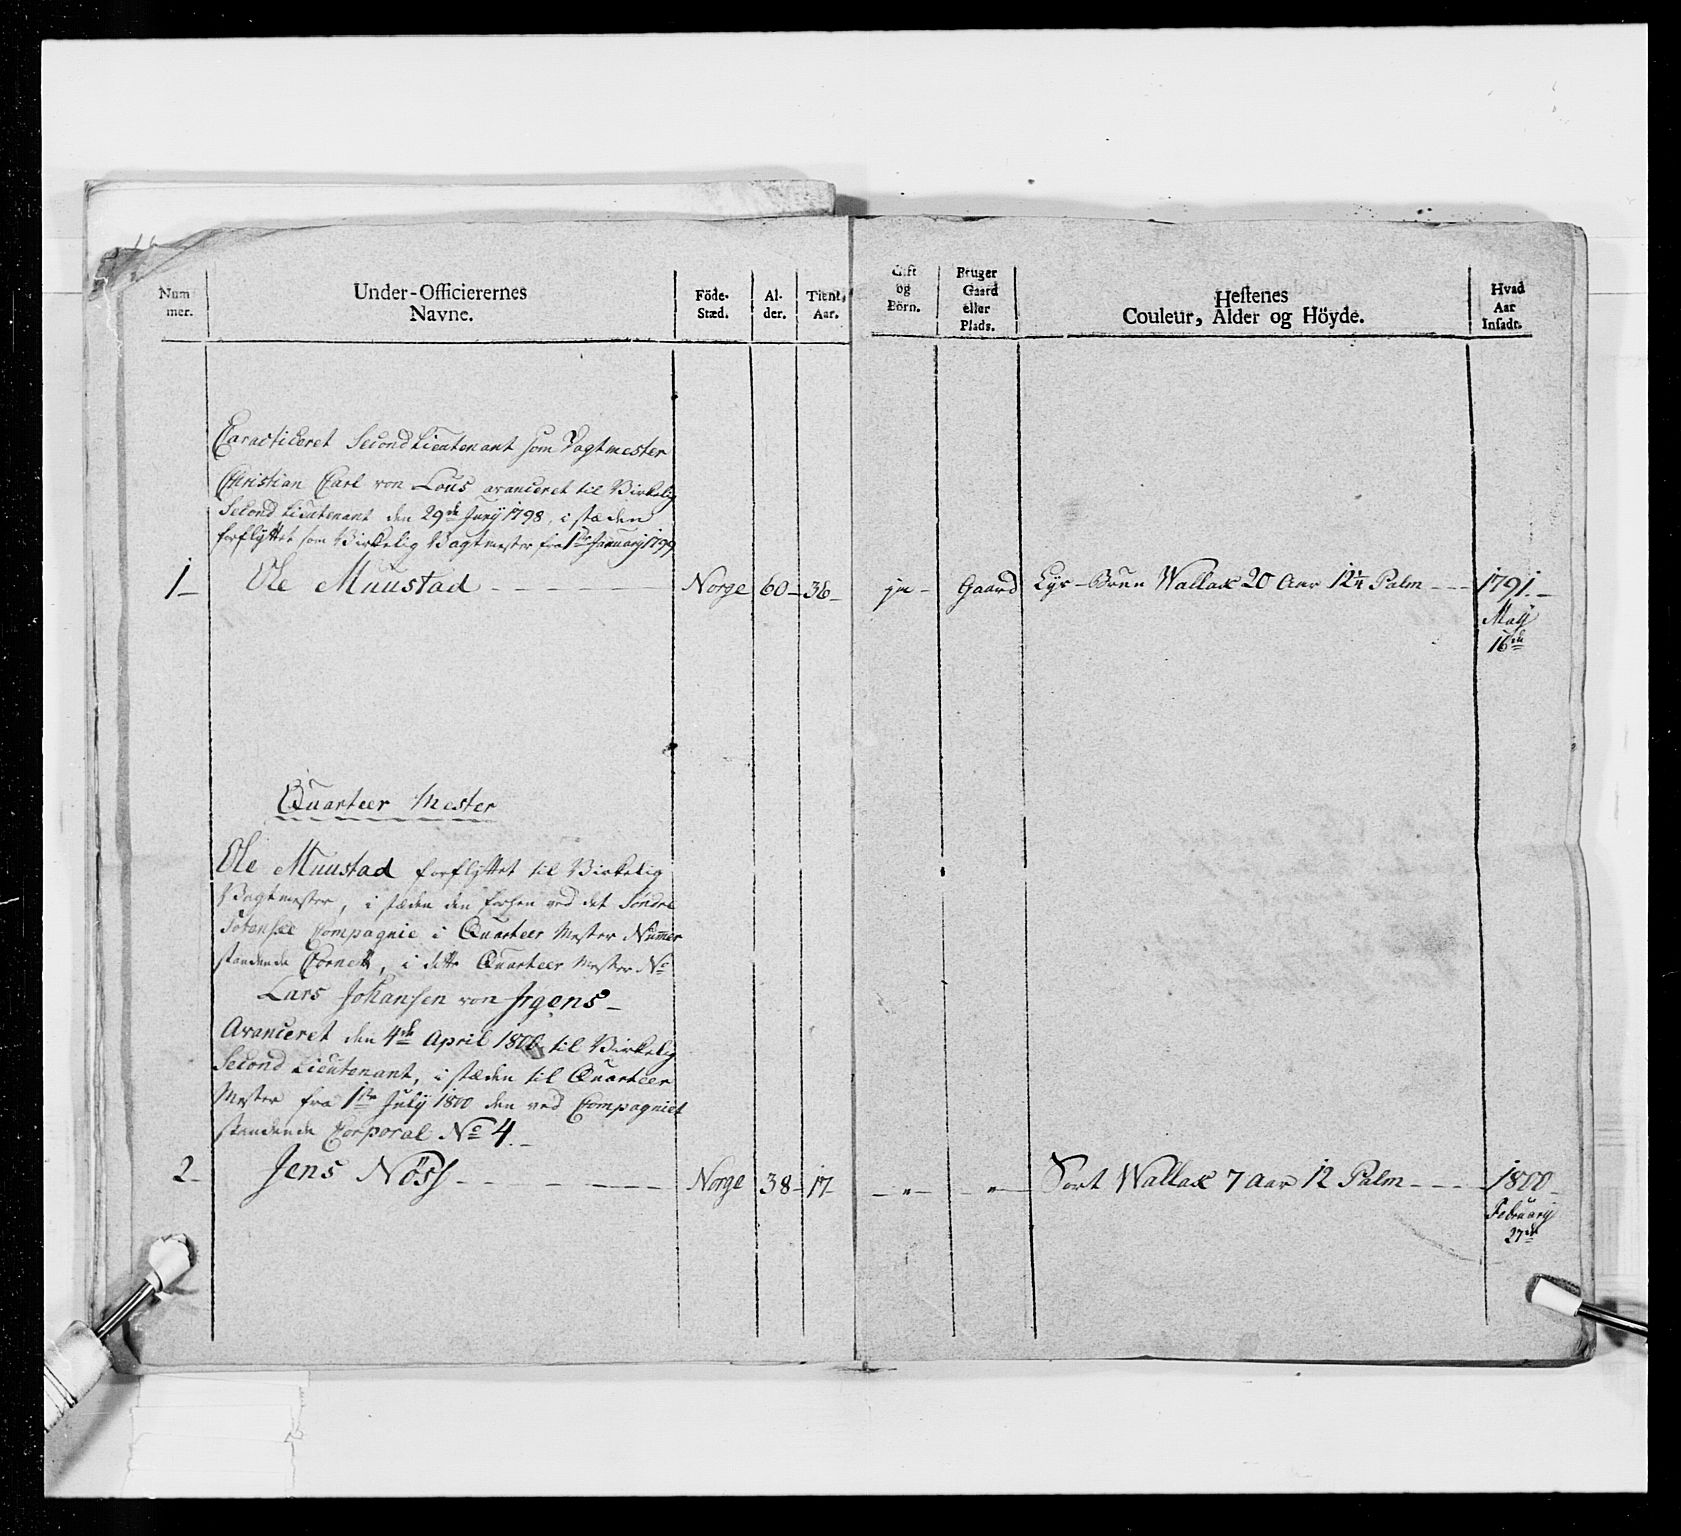 Num mer.
Under-Officierernes Navne.
Föde-Stæd.
Al-der.
Tient, Aar.
Gift og Börn.
Bruger Gaard eller Plads.
Hestenes Couleur, Alder og Höyde.
Hvad Aar Insadt.
Caracticeret Second Lieutenant som Vagtmester
Christian Carl von Lous avanceret til Virkelig
Second Lieutenant den 29de Junÿ 1798, i stæden
forflÿttet som Virkelig Vagtmester fra 1ste Januarÿ 1799
1_ Ole Muustad - - - - Norge 60_ 36_ ja - Gaard Lÿs-Brun Wallax 20 Aar 12 1/4 Palm - - - 1791._
Maÿ
16de
Quarteer Mester
Ole Muustad forflÿttet til Virkelig
Vagtmester, i stæden den ved det Söndre
Totenske Compagnie i Quarteer Mester Nummer
standende Cornet, i dette Quarteer Mester No
Lars Johansen von Irgens_
Avanceret den 4de April 1800 til Virkelig
Second Lieutenant, i stæden til Quarteer
Mester fra 1ste Julÿ 1800 den ved Compagniet
standende Corporal No 4._
2_ Jens Nöss - - - - Norge 38_ 17_ _"_ _"_ Sort Wallax 7 Aar 12 Palm - - - 1800_
Februarÿ
27de